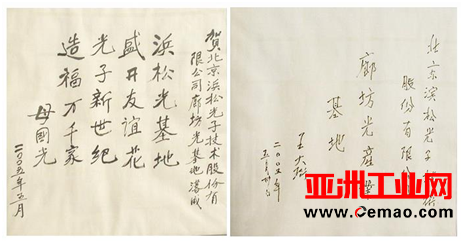 贺北京浜松光子技术股份有
限公司廊坊光基地落成
浜松光基地
盛开友谊花
光子新世纪
造福万千家
母国光
二〇〇五年五月
北京滨松光子技术
股份有限
廊坊光产业
基地
王大珩
二〇〇五年
亚洲土木门窗
www.cemao.com